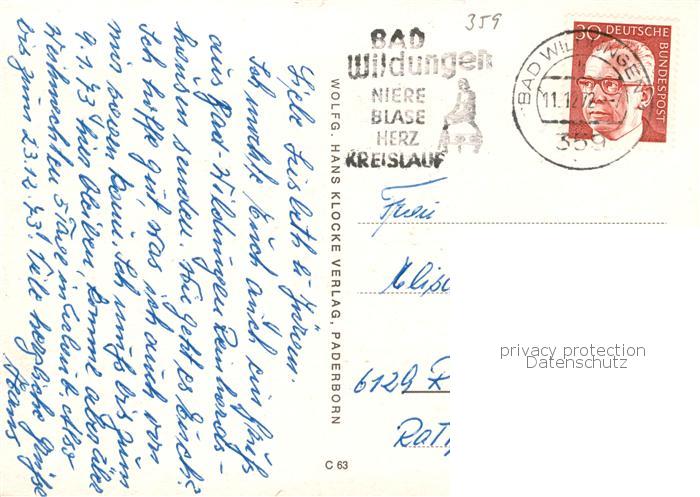 359
BAD
Wildungen
NIERE
BLASE
HERZ
KREISLAUF
BAD WILDUNGEN
11.12.72
359
30 DEUTSCHE
BUNDESPOST
Liebe Lisbeth u. Jürgen.
Ich möchte Euch auch ein Gruß
aus Bad-Wildungen Reinhards-
hausen senden. Wie geht es Euch?
Ich hoffe gut, was ich auch von
mir sagen kann. Ich muß bis zum
9.1.73 hier bleiben, komme aber über
Weihnachten 5 Tage in Urlaub. Also
bis zum 23.12.73! Viele herzliche Grüße
Hans
WOLFG. HANS KLOCKE VERLAG, PADERBORN
C 63
Frau
Elis
6129 R
Rat
privacy protection
Datenschutz